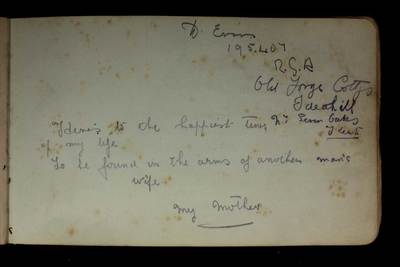 D. Evans
195407
R.G.A
Old Forge Cottgs
Ideahill
Nr Seven Oakes
Kent
Here's to the happiest time
of my life
To be found in the arms of another man's
wife
My Mother